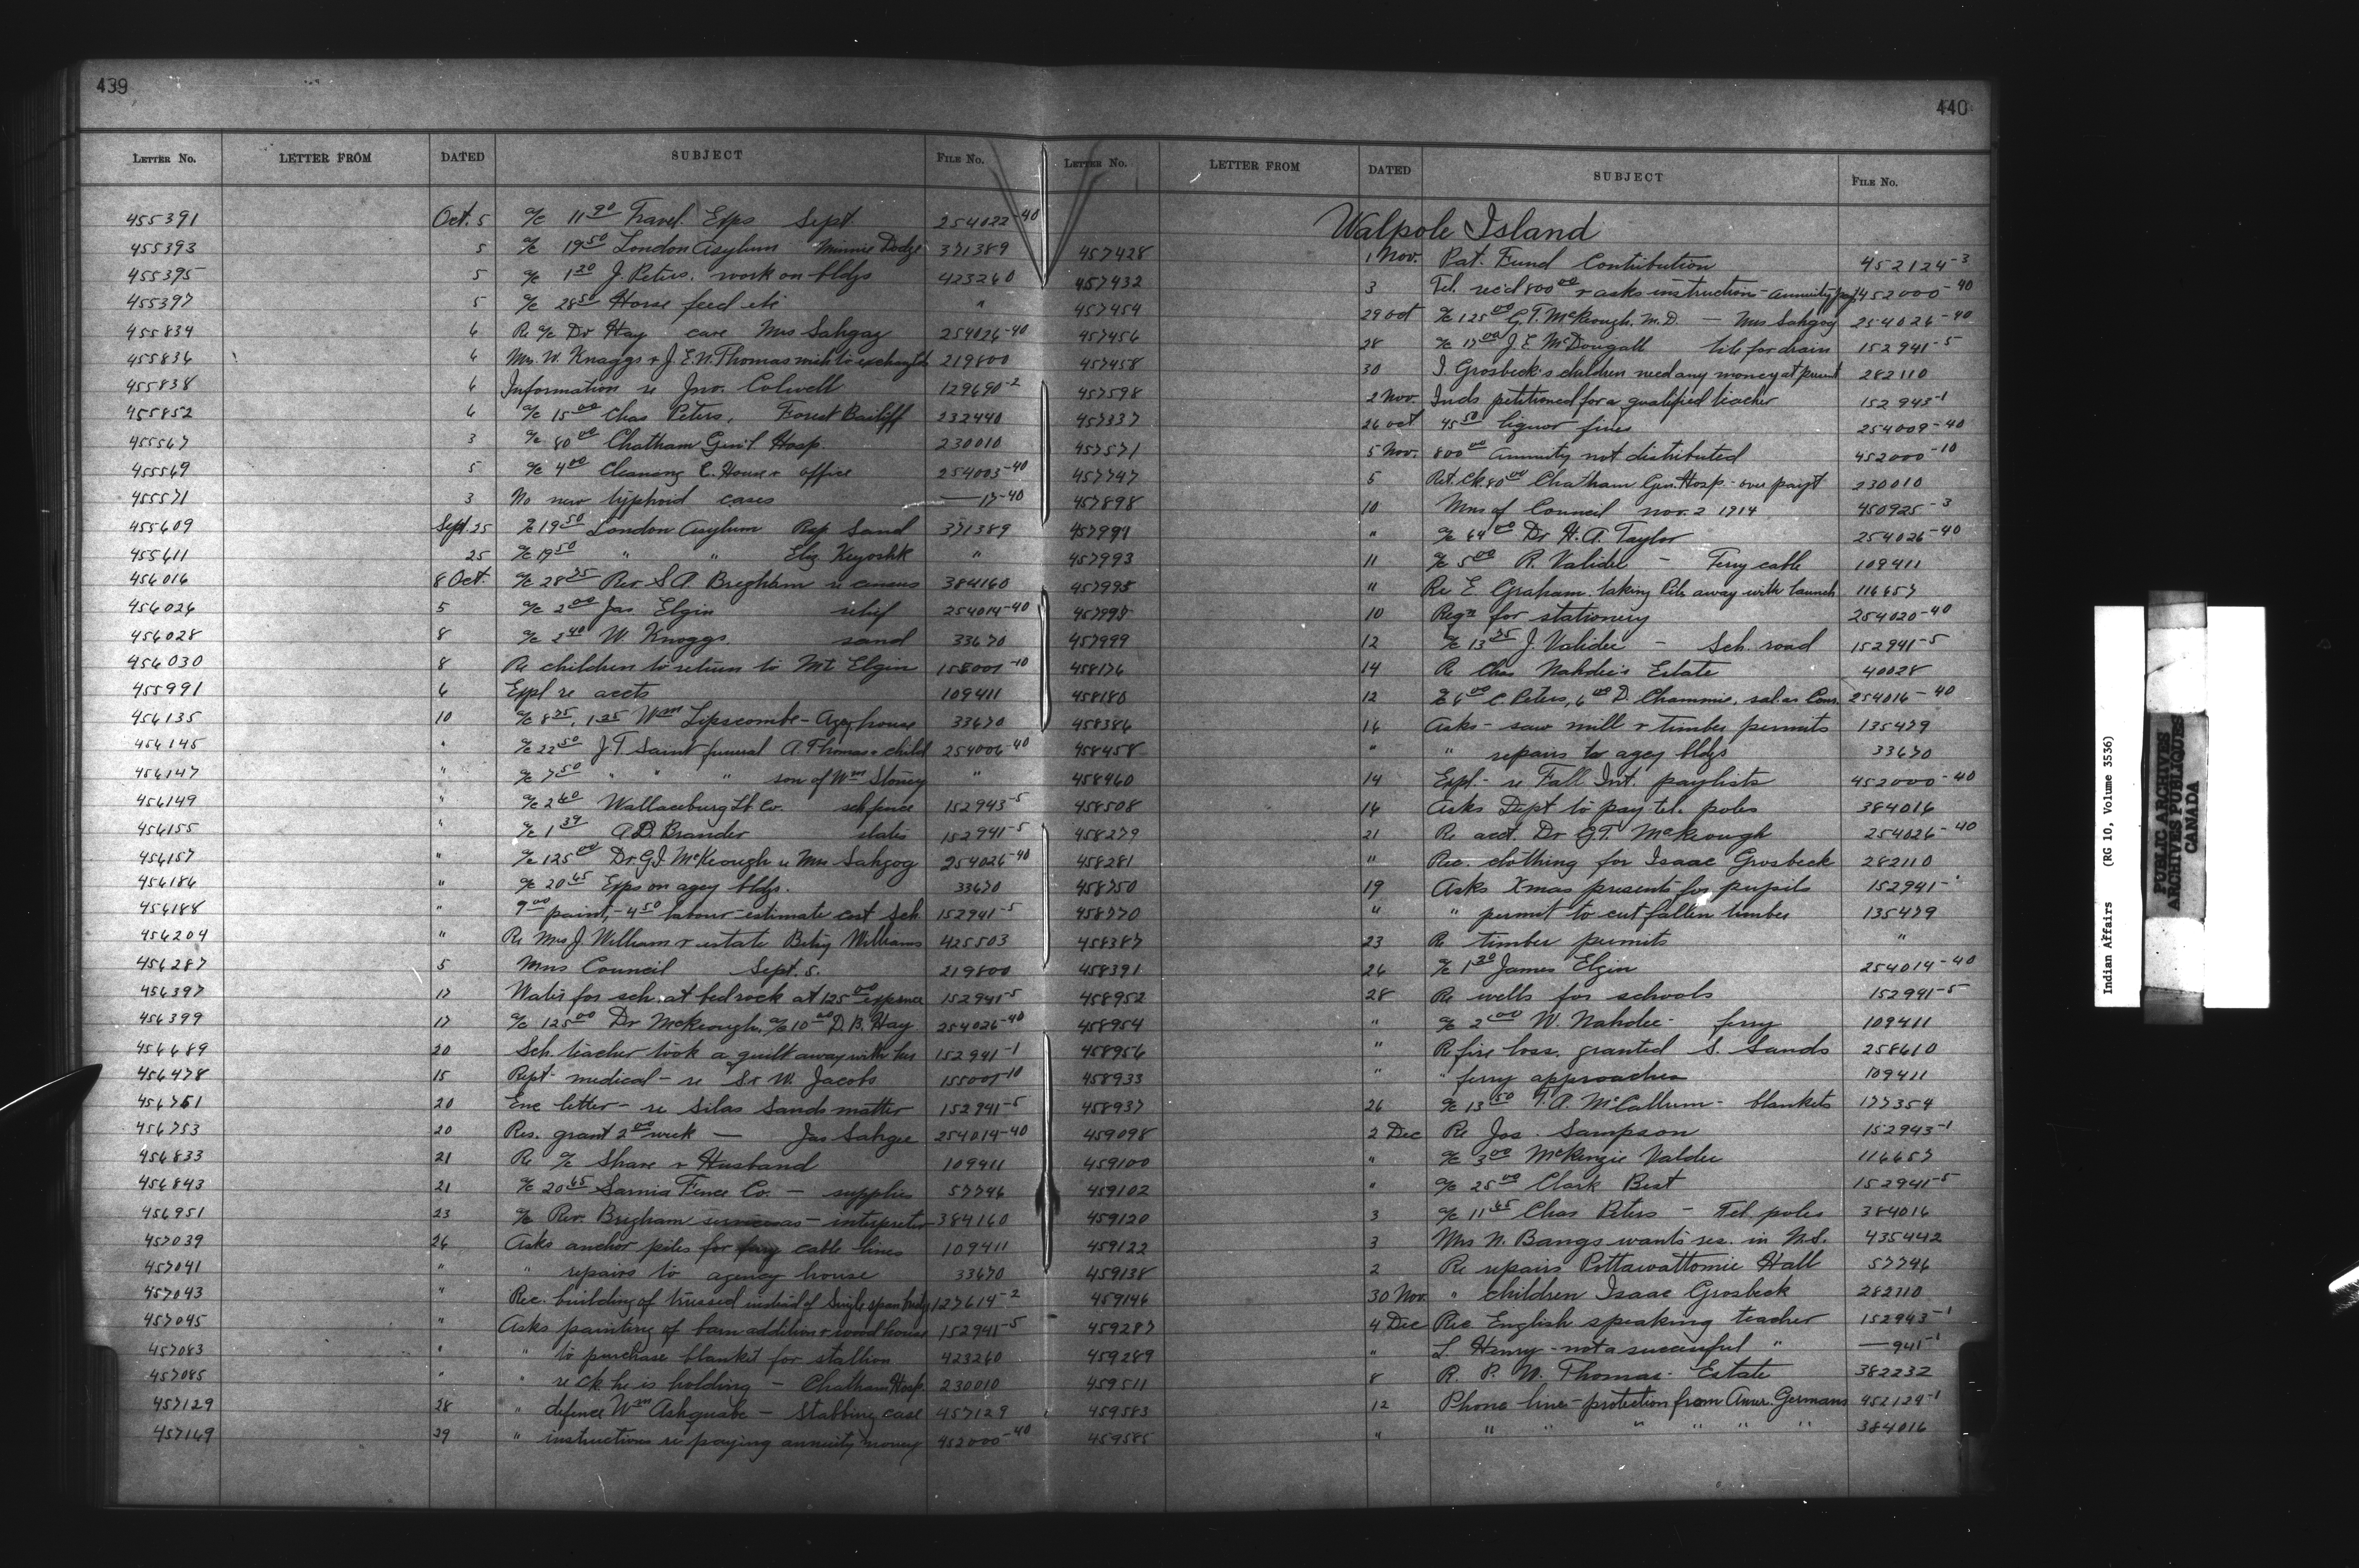 439
LETTER No. LETTER FROM DATED SUBJECT FILE No.
455391 Oct. 5 a/c 11 90 Travel. Exps Sept 254022-40
455393 5 a/c 19 50 London Asylum Minnie Dodge 371389
455395 5 a/c 1 20 J. Peters. work on bldgs 423260
455397 5 a/c 28 50 Horse feed etc "
455834 6 Re a/c Dr Hay care Mrs Sahgag 254026-40
455836 6 Mrs. W. Knaggs & J. E. N. Thomas wish to exchange 219800
455838 6 Information re Jno. Colwell 129690-2
455852 6 a/c 15 00 Chas Peters, Forest Bailiff 232440
455567 3 a/c 80 00 Chatham Gen'l Hosp. 230010
455569 5 a/c 4 00 Cleaning C. House & office 254003-40
455571 3 No new typhoid cases —17-40
455609 Sept. 25 a/c 19 50 London Asylum Rep Sand 371389
455611 25 a/c 19 50 " " Eliz Keyoshk "
456016 8 Oct. a/c 28 75 Rev S. A. Brigham re census 384160
456026 5 a/c 2 00 Jas Elgin relief 254014-40
456028 8 a/c 2 40 W. Knaggs sand 33670
456030 8 Re children to return to Mt. Elgin 155001-10
455991 6 Expl re accts 109411
456135 10 a/c 8 75, 1 25 Wm Lipscombe - Agcy house 33670
456145 " a/c 22 50 J. T. Saint funeral A. Thomas & child 254006-40
456147 " a/c 7 50 " " " son of Wm Stoney "
456149 " a/c 2 60 Wallaceburg Lt Co. sch fence 152943-5
456155 " a/c 1 39 A. D. Brander slates 152941-5
456157 " a/c 125 00 Dr. G. J. McKeough re Mrs Sahgog 254026-40
456186 " a/c 20 65 Exps on agcy bldgs. 33670
456188 " 9 00 paint, - 4 50 labour - estimate cost Sch. 152941-5
456204 " Re Mrs J. William & estate Betsy Williams 425503
456287 5 Mns Council Sept. 5. 219800
456397 17 Water for sch. at bedrock at 125 00 expense 152941-5
456399 17 a/c 125 00 Dr McKeough, a/c 10 00 D. B. Hay 254026-40
456689 20 Sch. teacher took a quilt away with her 152941-1
456478 15 Rept - medical - re Sr W. Jacobs 155001-10
456751 20 Enc letter - re Silas Sands matter 152941-5
456753 20 Res. grant 2 00 week — Jas Sahgee 254014-40
456833 21 Re a/c Shaw & Husband 109411
456843 21 a/c 20 65 Sarnia Fence Co. - supplies 57746
456951 23 a/c Rev. Brigham services as - interpreter 384160
457039 26 Asks anchor piles for ferry cable lines 109411
457041 " " repairs to agency house 33670
457043 " Rec. building of trussed instead of single span bridge 127614-2
457045 " Asks painting of barn addition & woodhouse 152941-5
457083 " " to purchase blanket for stallion 423260
457085 " " re ck he is holding - Chatham Hosp. 230010
457129 28 " defence Wm Ashquabe - Stabbing case 457129
457169 29 " instructions re paying annuity money 452000-40
440
LETTER No. LETTER FROM DATED SUBJECT FILE No.
Walpole Island
457428 1 Nov. Pat. Fund Contribution 452124-3
457432 3 Tel. rec'd 800 00 & asks instructions - annuity pay 452000-40
457454 29 Oct a/c 125 00 G. T. McKeough, M. D. — Mrs Sahgog 254026-40
457456 28 a/c 17 00 J. E. McDougall tile for drain 152941-5
457458 30 I. Grosbeck's children need any money at present 282110
457598 2 Nov. Inds. petitioned for a qualified teacher 152943-1
457337 26 Oct 45 50 liquor fines 254009-40
457571 5 Nov. 800 00 annuity not distributed 452000-10
457747 5 Ret. ck. 80 00 Chatham Gen. Hosp - over payt 230010
457898 10 Mns of Council Nov. 2 1914 450925-3
457991 " a/c 64 00 Dr H. A. Taylor 254026-40
457993 11 a/c 5 00 R. Validee - Ferry cable 109411
457995 " Re E. Graham. taking Pile away with launch 116657
457997 10 Reqn for stationery 254020-40
457999 12 a/c 13 75 J. Validee - Sch. road 152941-5
458176 14 Re Chas Nahdee's Estate 40028
458180 12 a/c 6 00 C. Peters, 6 00 D. Chammie, sal. as Cons. 254016-40
458386 16 Asks - saw mill & timber permits 135479
458458 " " repairs to agcy bldgs 33670
458460 14 Expl - re Fall Int. paylists 452000-40
458508 16 Asks Dept to pay tel. poles 384016
458279 21 Re acct. Dr G. T. McKeough 254026-40
458281 " Rec. clothing for Isaac Grosbeck 282110
458750 19 Asks Xmas presents for pupils 152941-1
458770 " " permit to cut fallen timber 135479
458387 23 Re timber permits "
458391 26 a/c 1 30 James Elgin 254014-40
458952 28 Re wells for schools 152941-5
458954 " a/c 2 00 W. Nahdee - ferry 109411
458956 " Re fire loss. granted S. Sands 258610
458933 " " ferry approaches 109411
458937 26 a/c 13 50 T. A. McCallum - blankets 177354
459098 2 Dec Re Jos. Sampson 152943-1
459100 " a/c 3 00 McKenzie Valdee 116657
459102 " a/c 25 00 Clark Best 152941-5
459120 3 a/c 11 65 Chas Peters - Tel poles 384016
459122 3 Mrs N. Bangs wants res. in N.S. 435442
459138 2 Re repairs Pottawattomie Hall 57746
459146 30 Nov. " children Isaac Grosbeck 282110
459287 4 Dec Rec. English speaking teacher 152943-1
459289 " L. Henry - not a successful " —941-1
459511 8 R. P. W. Thomas - Estate 382232
459583 12 Phone line - protection from Amer. Germans 452124-1
459585 " " " " " " " 384016
Indian Affairs (RG 10, Volume 3536)
PUBLIC ARCHIVES
ARCHIVES PUBLIQUES
CANADA